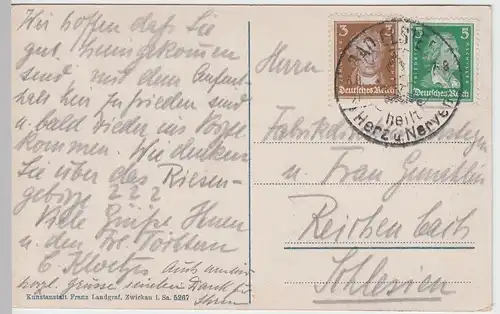 Wir hoffen daß Sie
gut heimgekommen
sind mit dem Aufent-
halt hier zufrieden sind
u. bald wieder ins
kommen. Wie denken
Sie über das Riesen-
gebirge ? ? ?
Viele Grüße Ihnen
u. den
Auch meiner-
herzl. Grüsse Dank für
Kunstanstalt Franz Landgraf, Zwickau i. Sa. 5267
3 3
Deutsches Reich
5 5
Deutsches Reich
heilt
Herz u. Nerven
Herrn
u. Frau Gemahlin
Reichenbach
Schlesien